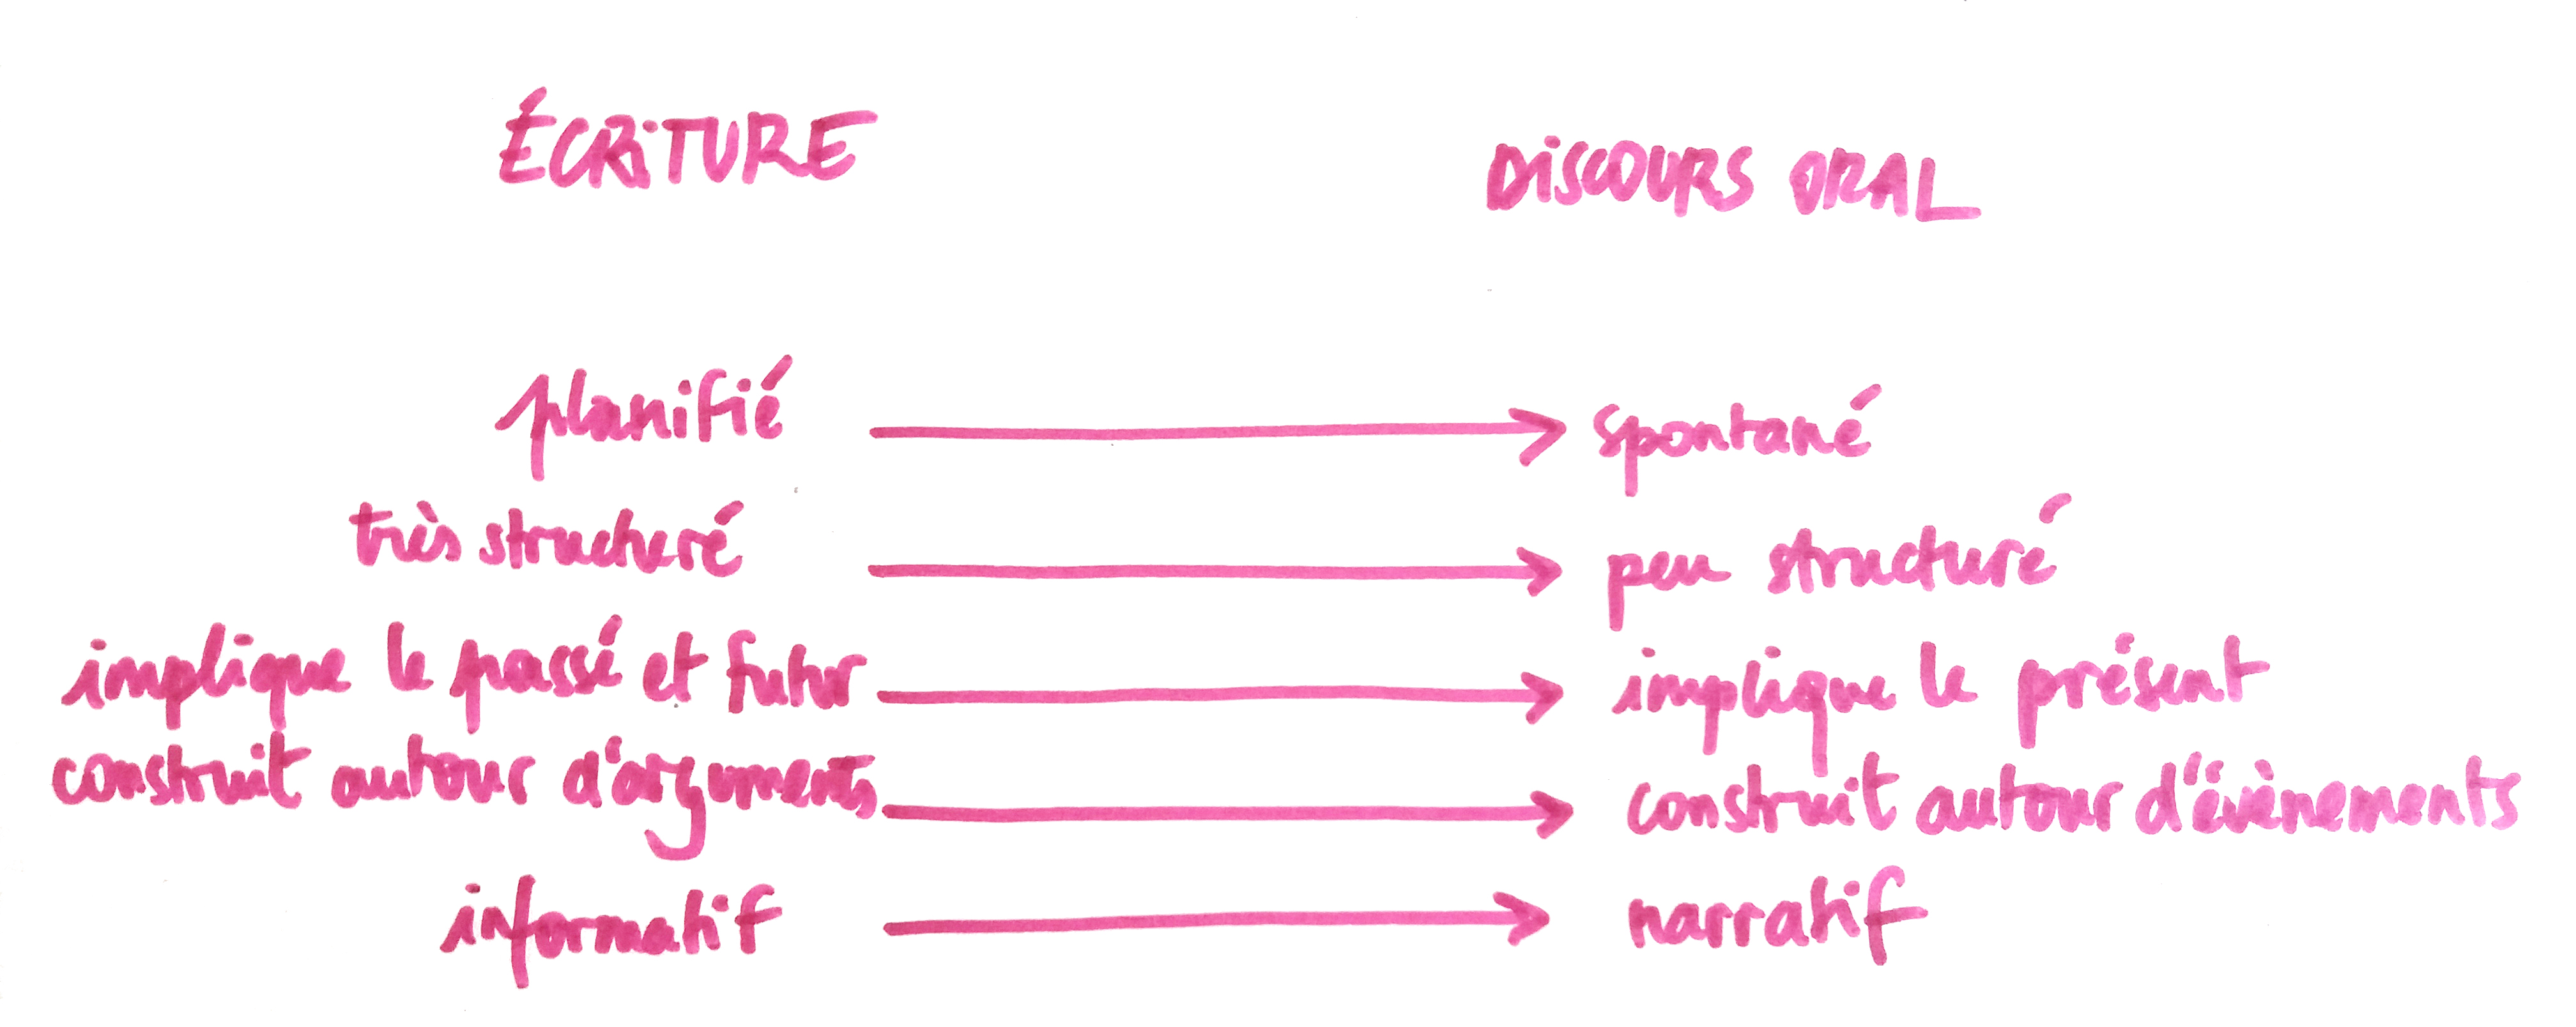 ÉCRITURE DISCOURS ORAL
planifié → spontané
très structuré → peu structuré
implique le passé et futur → implique le présent
construit autour d'arguments → construit autour d'évènements
informatif → narratif